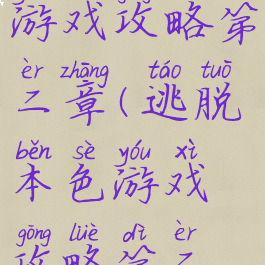 游戏攻略第
èr zhāng táo tuō
二章(逃脱
běn sè yóu xì
本色游戏
gōng lüè dì èr
攻略第二